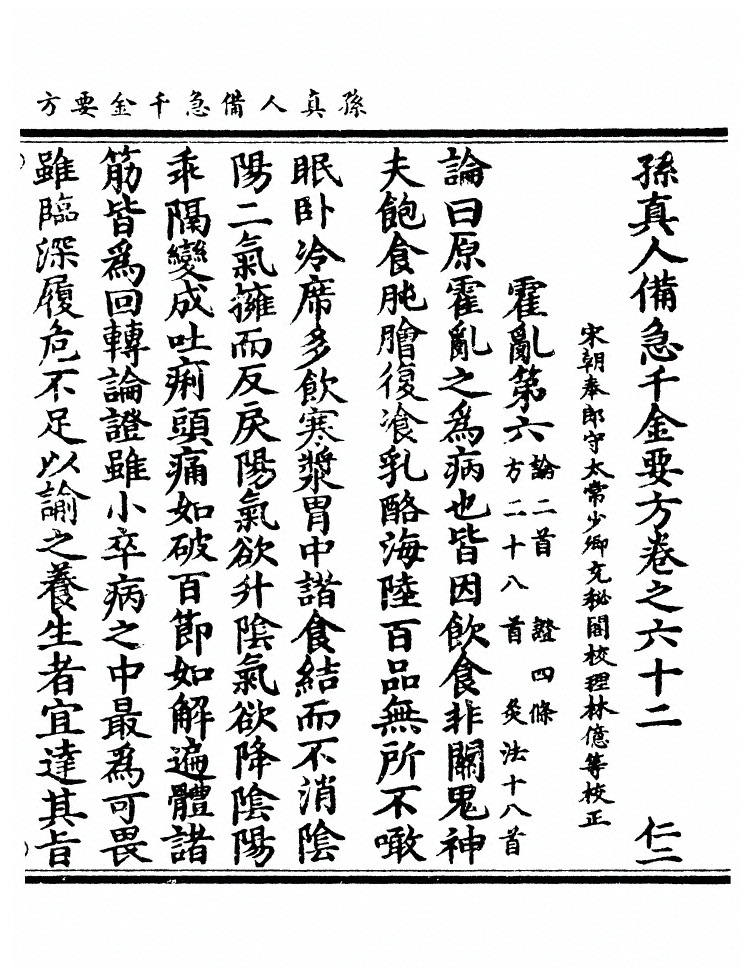 孫真人備急千金要方
孫真人備急千金要方卷之六十二 仁二
宋朝奉郎守太常少卿充秘閣校理林億等校正
霍亂第六 論二首 證四條
方二十八首 灸法十八首
論曰原霍亂之為病也皆因飲食非關鬼神
夫飽食肫膾復飡乳酪海陸百品無所不噉
眠卧冷席多飲寒漿胃中諸食結而不消陰
陽二氣擁而反戾陽氣欲升陰氣欲降陰陽
乖隔變成吐痢頭痛如破百節如解遍體諸
筋皆為回轉論證雖小卒病之中最為可畏
雖臨深履危不足以諭之養生者宜達其旨